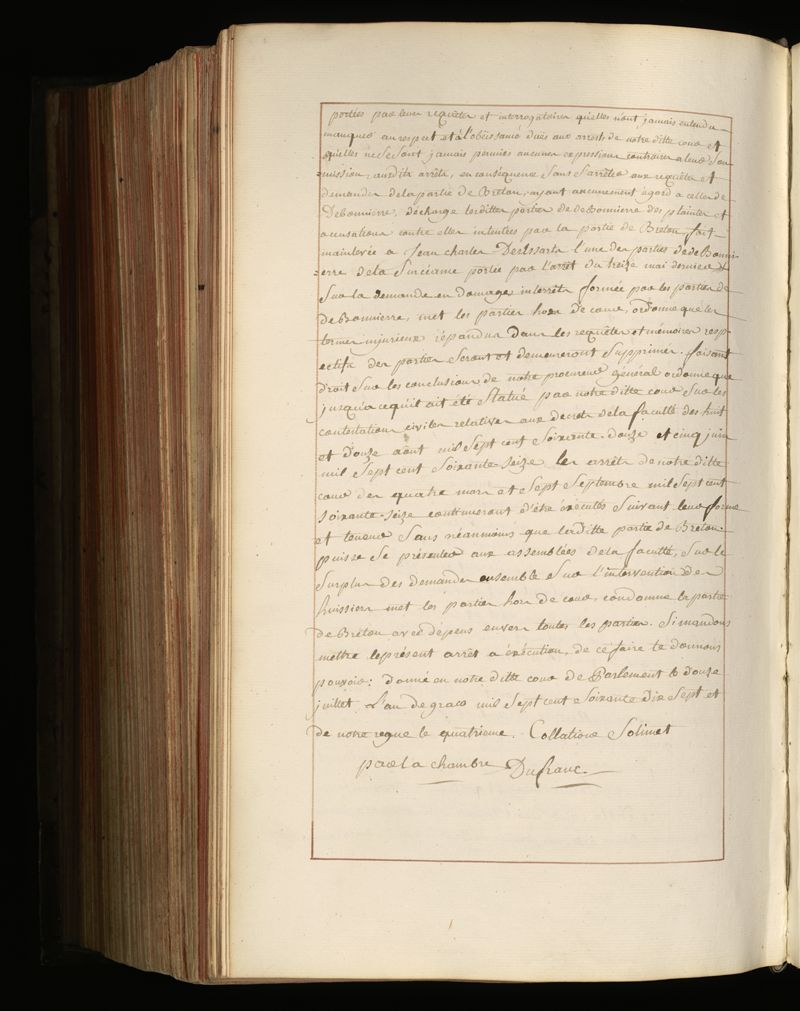 portées par leurs requêtes et interrogatoires quelles n'ont jamais entendu
manquer au respect et à l'obéissance dües aux arrests de notre ditte cour et
quelles ne se sont jamais permises aucunes expressions contraires a leur Sou
mission auxdits arrêts, en conséquence sans S'arrêter aux requêtes et
demandes de la partie de Breton, ayant aucunement égard a celles de
Debonniere, décharge lesdittes parties de de Bonniere des plaintes et
accusations contre elles intentées par la partie de Breton, fait
mainlevée a Jean Charles Desessartz l'une des parties de de Bonni-
=erre de la Surséance portée par l'arrêt du treize mai dernier Et
Sur la demande en domages interrêts formée par les parties de
de Bonnierre, met les parties hors de cour, ordonne que les
termes injurieux répandus dans les requêtes et mémoires resp-
ectifs des parties Seront et demeureront Supprimés. faisant
droit Sur les conclusions de notre procureur général ordonne que
jusqu'a ce qu'il ait été Statué par notre ditte cour Sur les
contestations civiles relatives aux decrets de la faculté des huit
et douze août mil Sept cent Soixante-douze et cinq juin
mil Sept cent Soixante-Seize les arrêts de notre ditte
cour des quatre mars et Sept Septembre mil Sept cent
Soixante-Seize continueront d'être éxécutés Suivant leur forme
et teneur Sans néanmoins que laditte partie de Breton
puisse Se présenter aux assemblées de la faculté, Sur le
Surplus des demandes ensemble Sur l'intervention des
huissiers met les parties hors de cour, condamne la partie
de Breton avec dépens envers toutes les parties. Si mandons
mettre le présent arrêt a éxécution, de ce faire te donnons
pouvoir: donné en notre ditte cour de Parlement le douze
juillet L'an de grace mil Sept cent Soixante dix Sept et
de notre regne le quatrieme. Collationé Solimet
par la chambre Dufranc.